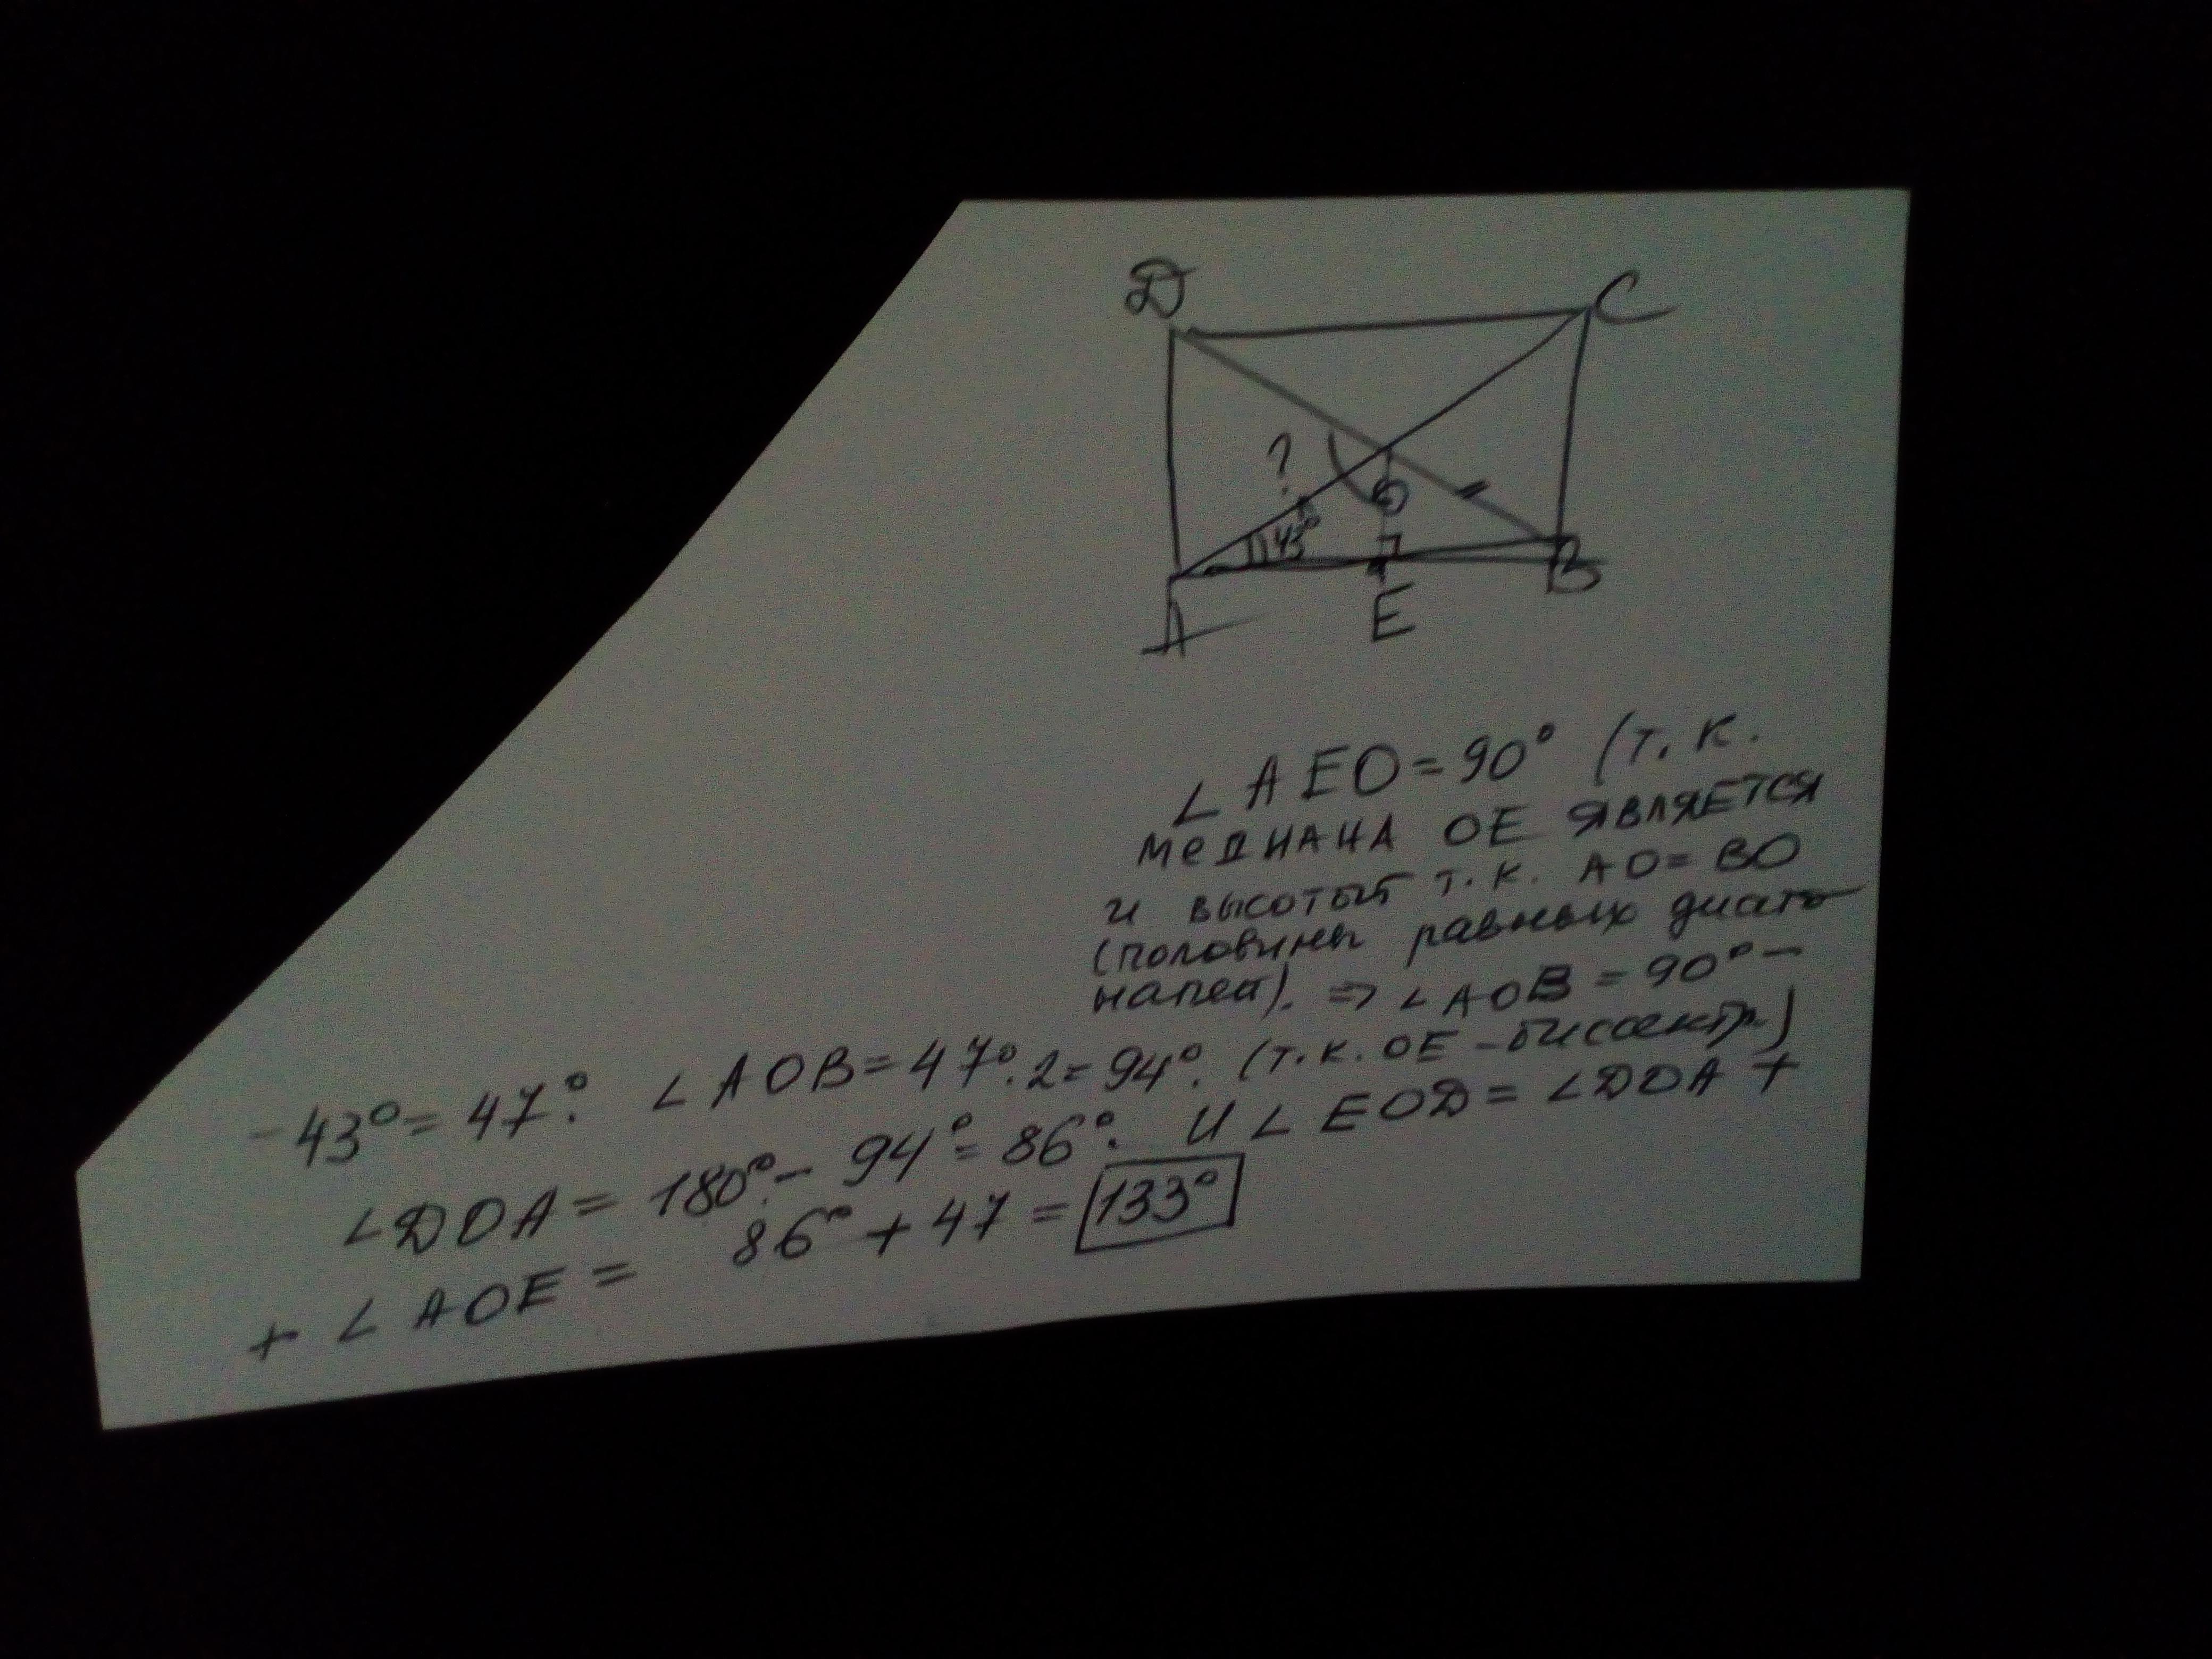 D
C
?
O
43°
B
A
E
∠AEO=90° (т.к.
медиана OE является
и высотой т.к. AO=BO
(половины равных диаго-
налей). ⇒ ∠AOB=90°-
-43°=47°. ∠AOB=47°·2=94°. (т.к. OE-биссектр.)
∠DOA=180°-94°=86°. и ∠EOD=∠DOA+
+∠AOE= 86°+47=133°